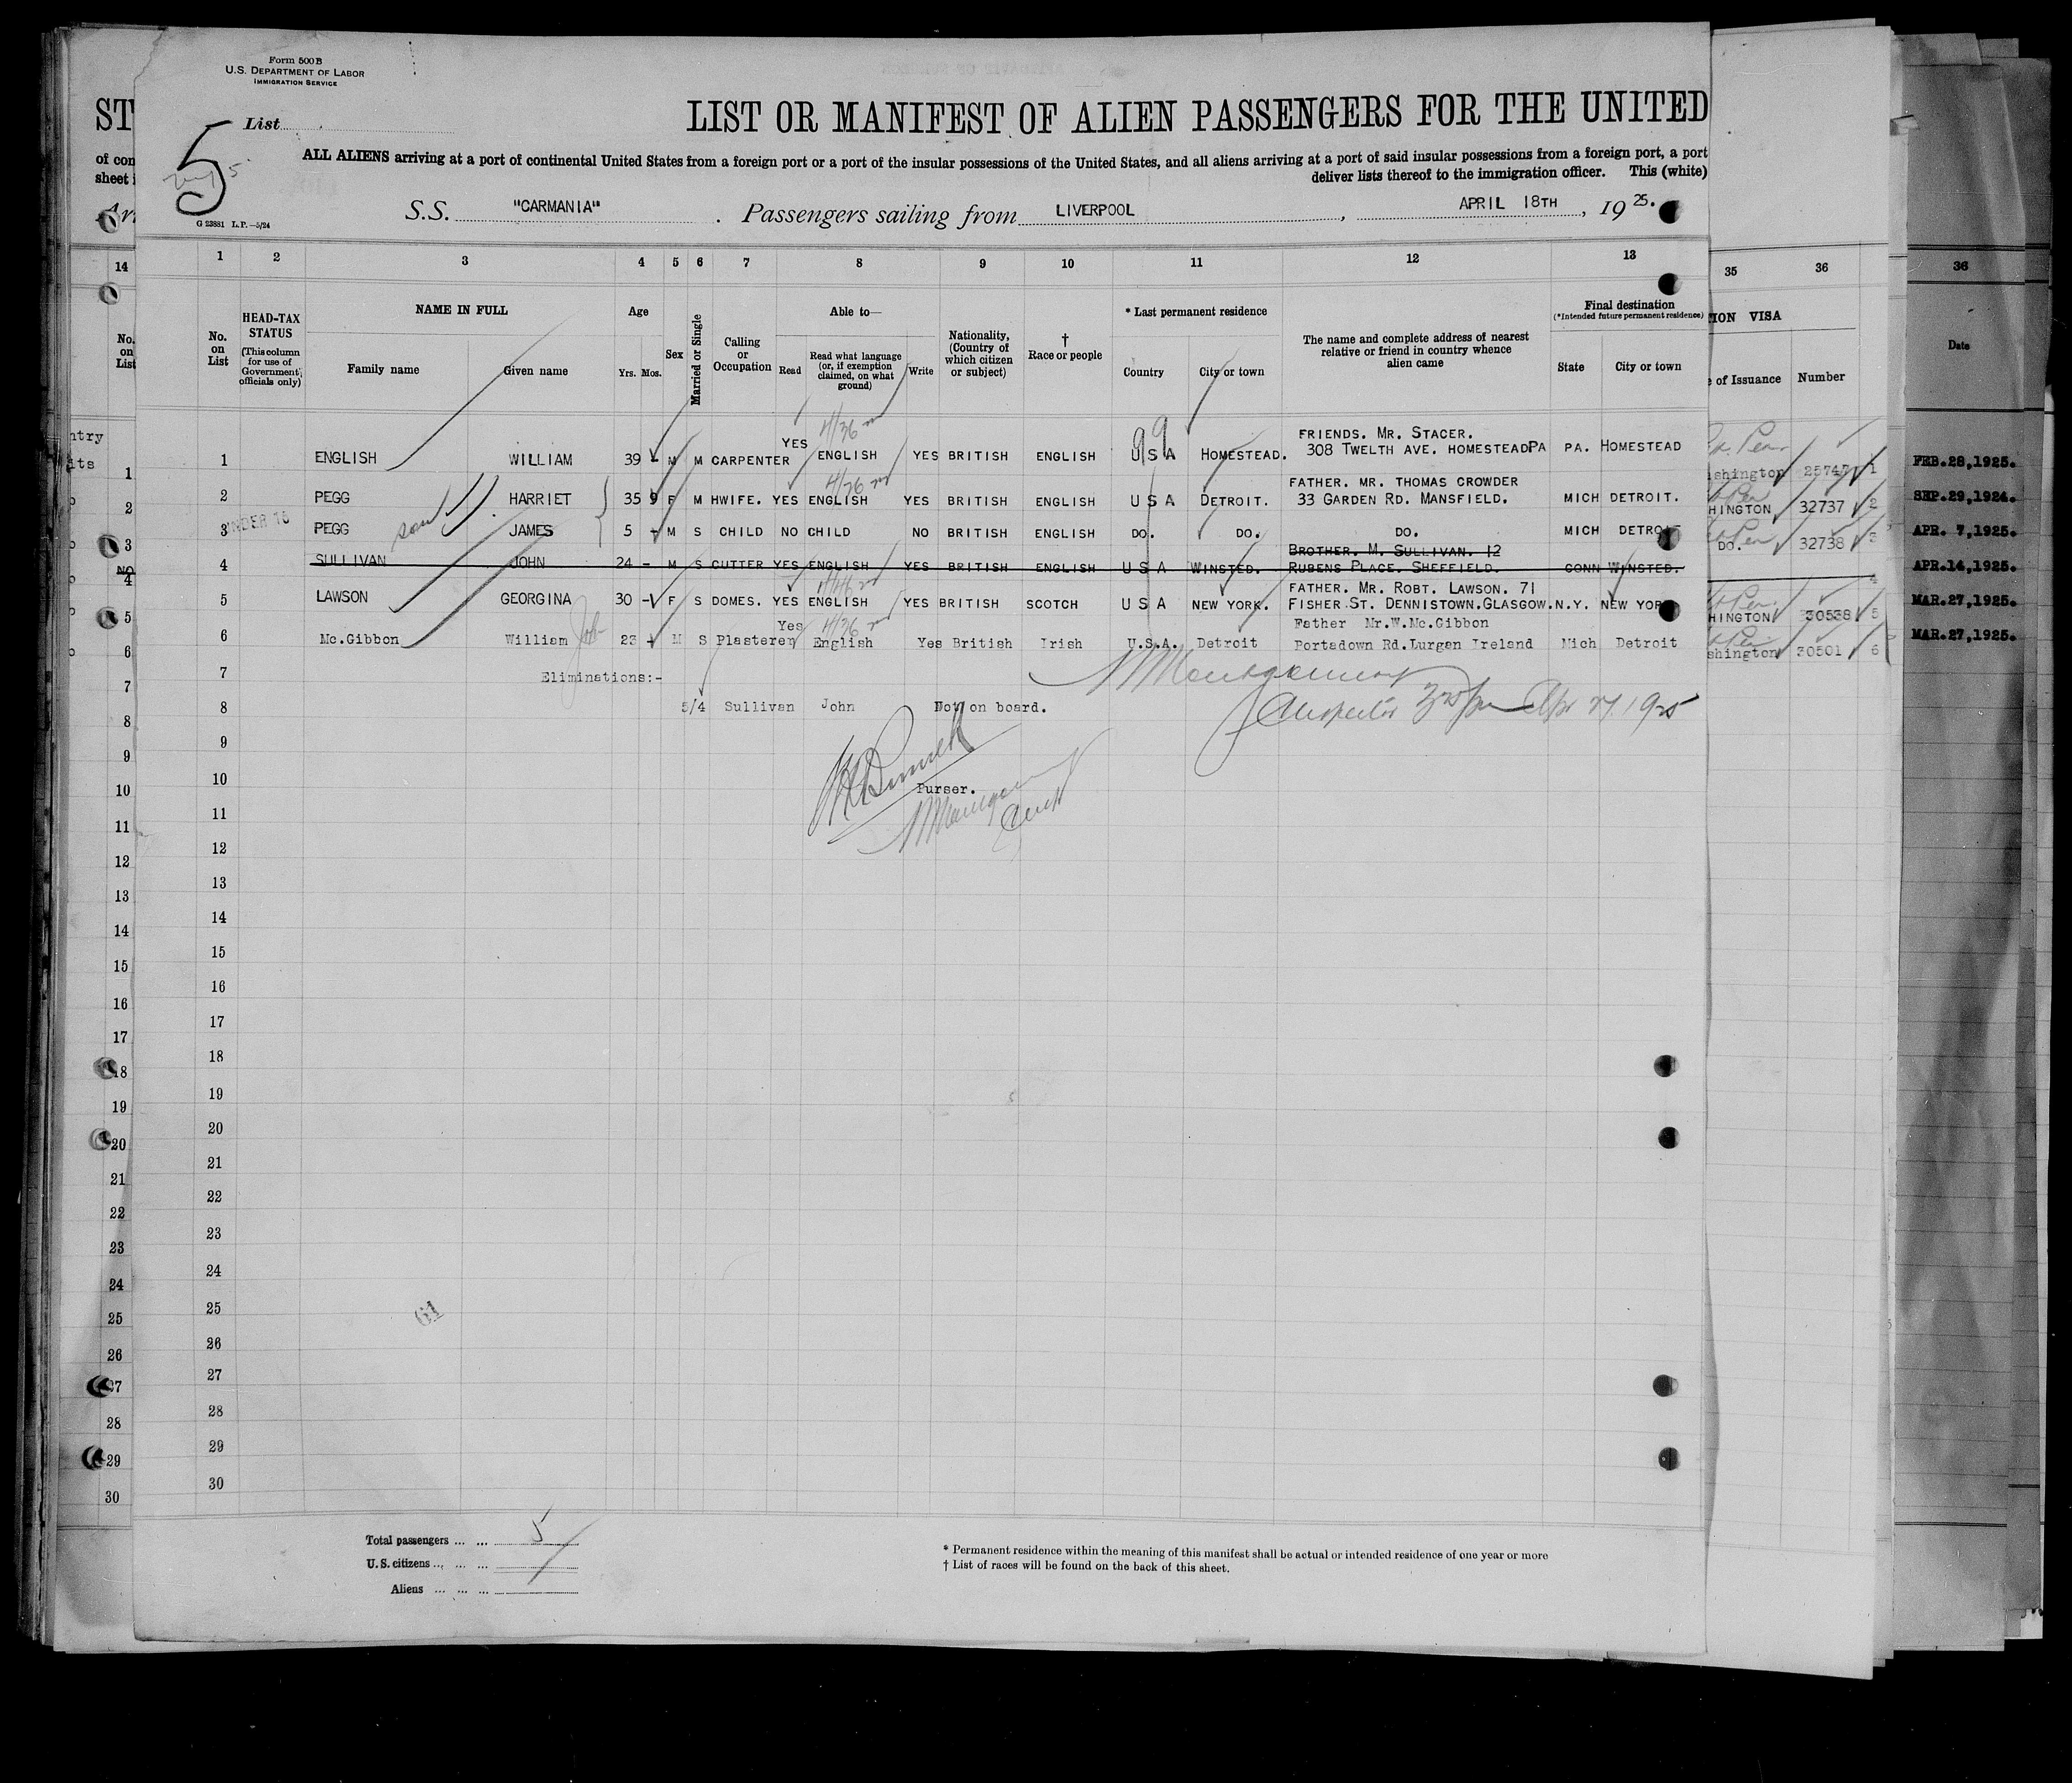 Form 500 B
U.S. DEPARTMENT OF LABOR
IMMIGRATION SERVICE
ST
List
LIST OR MANIFEST OF ALIEN PASSENGERS FOR THE UNITED
5
5
of con
sheet i
ALL ALIENS arriving at a port of continental United States from a foreign port or a port of the insular possessions of the United States, and all aliens arriving at a port of said insular possessions from a foreign port, a port
deliver lists thereof to the immigration officer. This (white)
S.S. "CARMANIA" . Passengers sailing from LIVERPOOL , APRIL 18TH , 19 25.
G 23881 L.P.—5/24
14 1 2 3 4 5 6 7 8 9 10 11 12 13 35 36 36
No. on List
No. on List
HEAD-TAX STATUS
(This column for use of Government officials only)
NAME IN FULL
Family name Given name
Age
Yrs. Mos.
Sex
Married or Single
Calling or Occupation
Able to—
Read
Read what language (or, if exemption claimed, on what ground)
Write
Nationality, (Country of which citizen or subject)
† Race or people
* Last permanent residence
Country City or town
The name and complete address of nearest relative or friend in country whence alien came
Final destination
(*Intended future permanent residence)
State City or town
ION VISA
e of Issuance Number
Date
ntry
its
1 ENGLISH WILLIAM 39 - M M CARPENTER YES ENGLISH YES BRITISH ENGLISH U S A HOMESTEAD. FRIENDS. MR. STACER.
308 TWELTH AVE. HOMESTEADPA PA. HOMESTEAD shington 25747 1 FEB.28,1925.
2 PEGG HARRIET 35 9 F M HWIFE. YES ENGLISH YES BRITISH ENGLISH U S A DETROIT. FATHER. MR. THOMAS CROWDER
33 GARDEN RD. MANSFIELD. MICH DETROIT. HINGTON 32737 2 SEP.29,1924.
UNDER 16 3 PEGG son JAMES 5 - M S CHILD NO CHILD NO BRITISH ENGLISH DO. DO. DO. MICH DETROIT DO. 32738 3 APR. 7,1925.
4 SULLIVAN JOHN 24 - M S CUTTER YES ENGLISH YES BRITISH ENGLISH U S A WINSTED. BROTHER. M. SULLIVAN. 12
RUBENS PLACE. SHEFFIELD. CONN WINSTED. 4 APR.14,1925.
5 LAWSON GEORGINA 30 - F S DOMES. YES ENGLISH YES BRITISH SCOTCH U S A NEW YORK. FATHER. MR. ROBT. LAWSON. 71
FISHER ST. DENNISTOWN.GLASGOW. N.Y. NEW YOR HINGTON 30538 5 MAR.27,1925.
6 Mc.Gibbon William 23 - M S Plasterer Yes English Yes British Irish U.S.A. Detroit Father Mr.W.Mc.Gibbon
Portadown Rd.Lurgan Ireland Mich Detroit shington 30501 6 MAR.27,1925.
7 Eliminations:-
8 5/4 Sullivan John Not on board.
Apr 27. 1925
9
10 Purser.
11
12
13
14
15
16
17
18
19
20
21
22
23
24
25
26
27
28
29
30
61
1
2
3
NO
4
5
6
7
8
9
10
11
12
13
14
15
16
17
18
19
20
21
22
23
24
25
26
27
28
29
30
Total passengers ... ... 5
U.S. citizens ... ... ...
Aliens ... ... ...
* Permanent residence within the meaning of this manifest shall be actual or intended residence of one year or more
† List of races will be found on the back of this sheet.